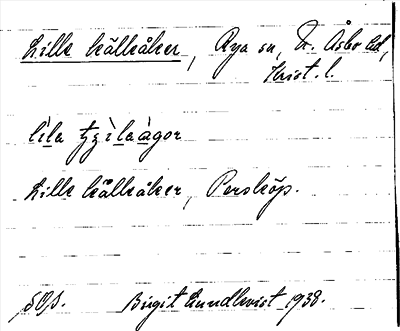 Lille källåker, Rya sn, N. Åsbo hd,
Krist. l.
lìla tɟɟìlaàgor
Lille källåker, Perstorp.
Birgit Lundkvist 1938.